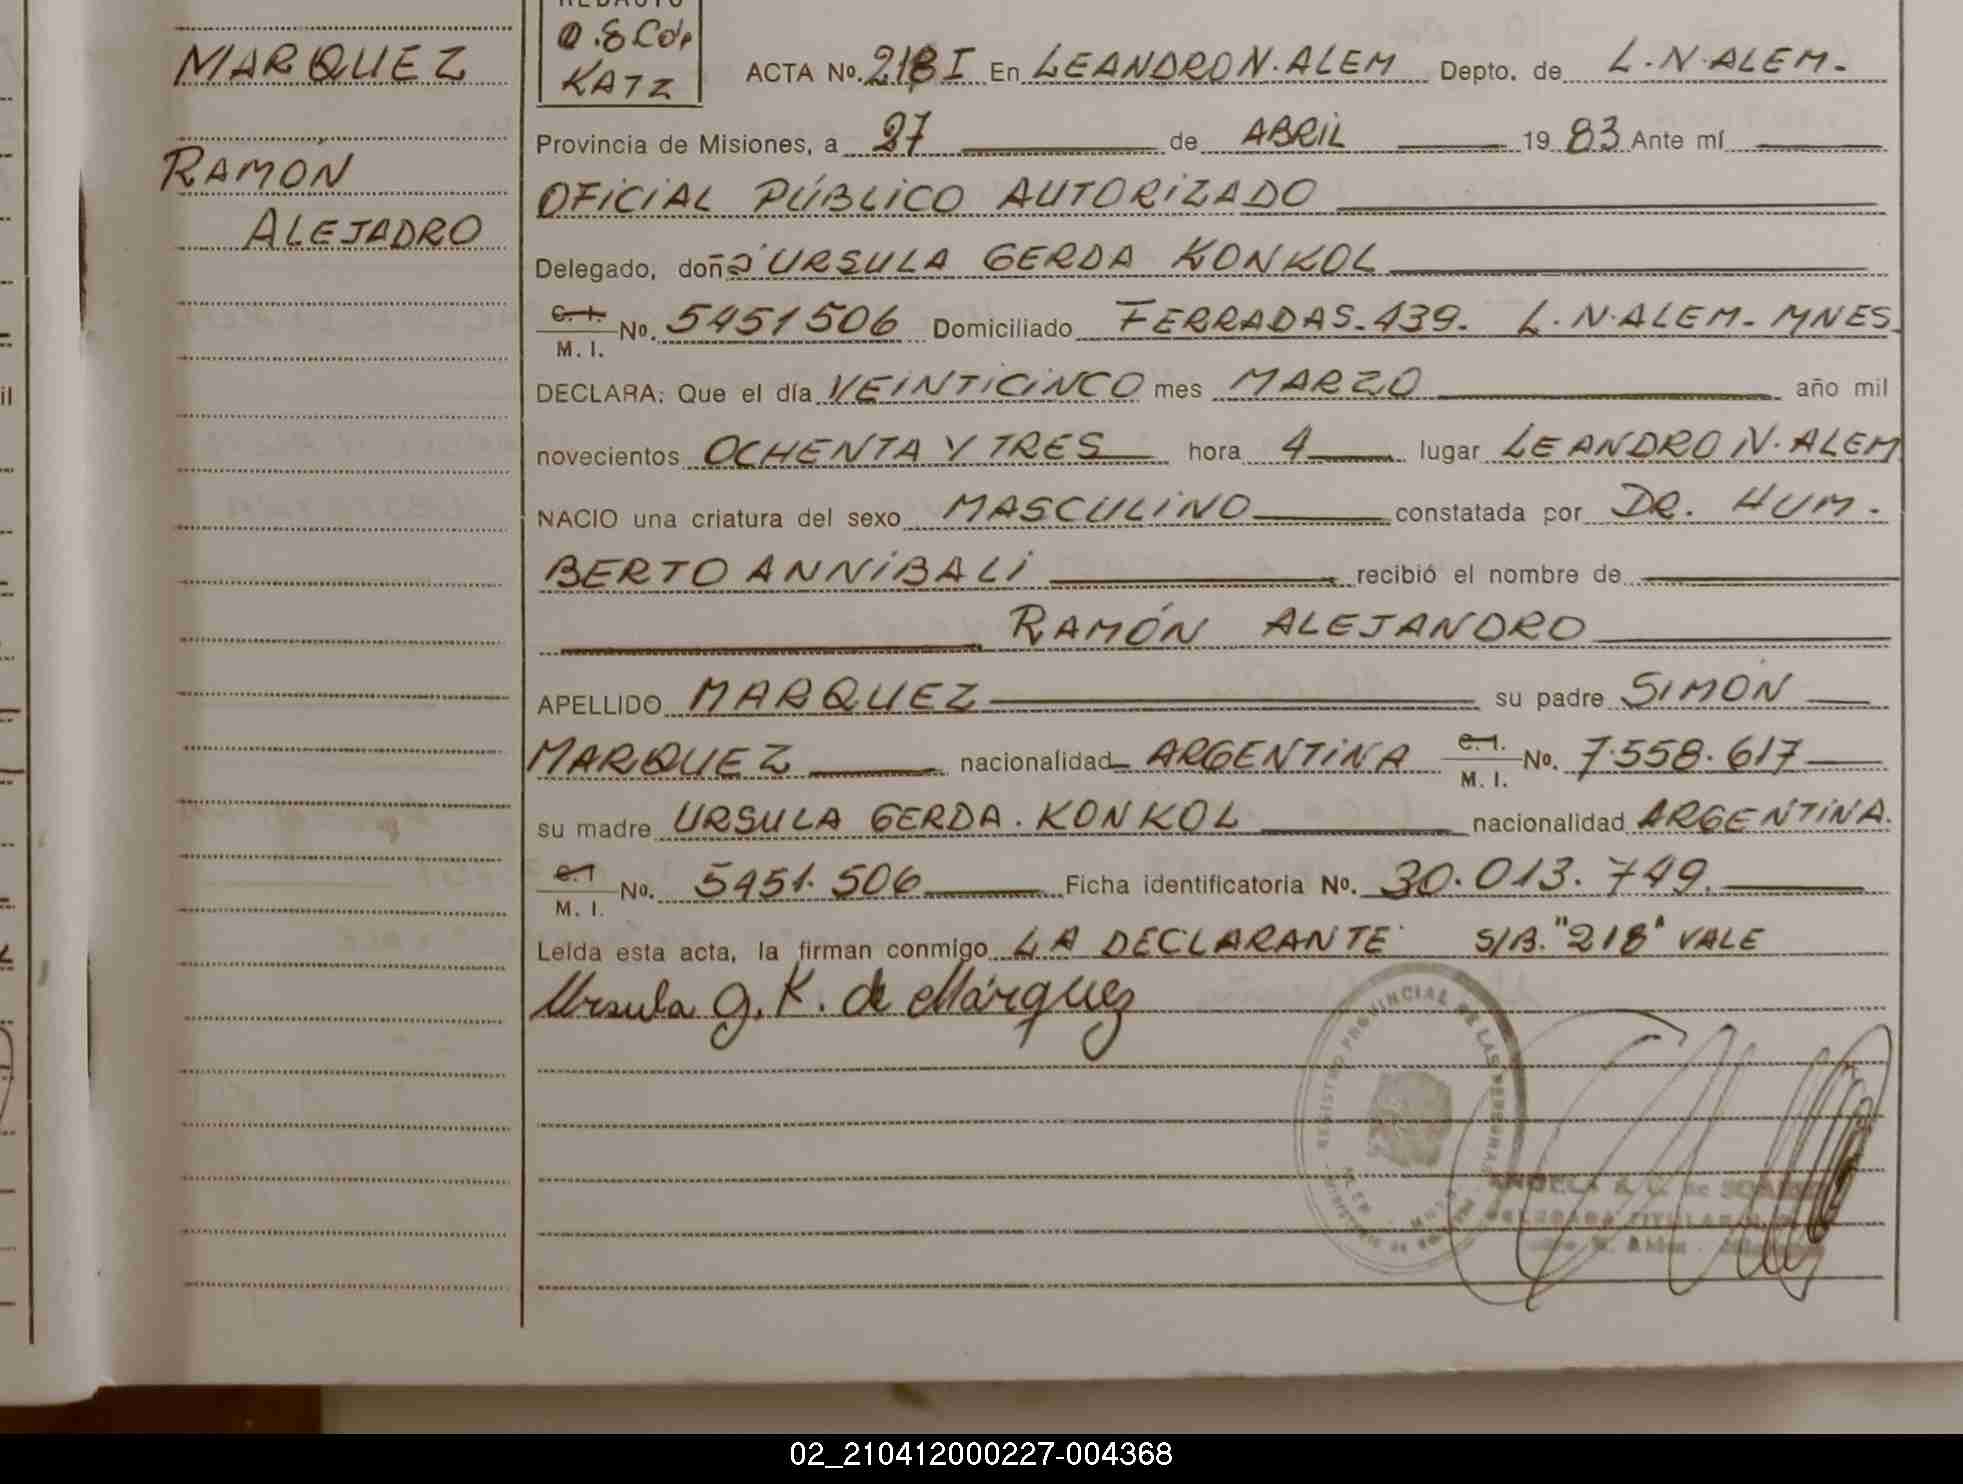 MARQUEZ
RAMÓN
ALEJADRO
REDACTO
KATZ
ACTA No. 218 I En LEANDRO N. ALEM Depto. de L. N. ALEM.
Provincia de Misiones, a 27 de ABRIL 19 83 Ante mí
OFICIAL PÚBLICO AUTORIZADO
Delegado, doña URSULA GERDA KONKOL
C. I. M. I. No. 5451506 Domiciliado FERRADAS-439. L. N. ALEM. MNES.
DECLARA: Que el día VEINTICINCO mes MARZO año mil
novecientos OCHENTA Y TRES hora 4 lugar LEANDRO N. ALEM
NACIO una criatura del sexo MASCULINO constatada por DR. HUM.
BERTO ANNIBALI recibió el nombre de
RAMÓN ALEJANDRO
APELLIDO MARQUEZ su padre SIMÓN
MARQUEZ nacionalidad ARGENTINA C. I. M. I. No. 7.558.617
su madre URSULA GERDA. KONKOL nacionalidad ARGENTINA.
C. I. M. I. No. 5451.506 Ficha identificatoria No. 30.013.749.
Leída esta acta, la firman conmigo LA DECLARANTE S/B. "218" VALE
Ursula G. K. de Márquez
REGISTRO PROVINCIAL DE LAS PERSONAS
02_210412000227-004368